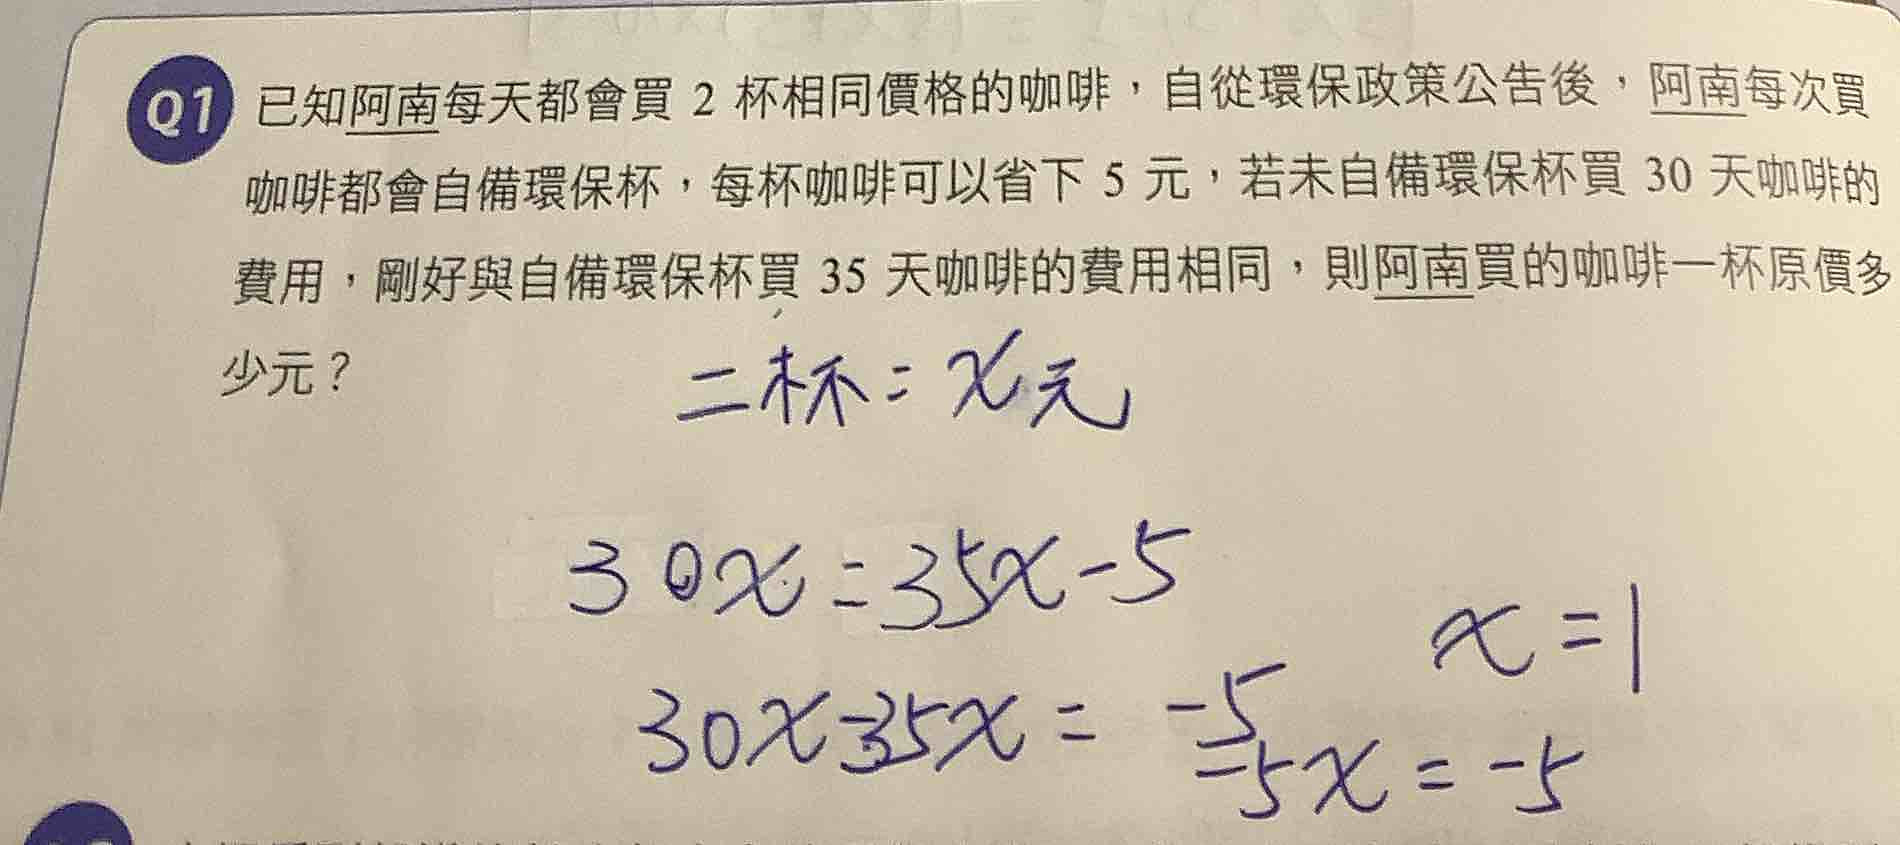 Q1 已知阿南每天都會買 2 杯相同價格的咖啡,自從環保政策公告後,阿南每次買
咖啡都會自備環保杯,每杯咖啡可以省下 5 元,若未自備環保杯買 30 天咖啡的
費用,剛好與自備環保杯買 35 天咖啡的費用相同,則阿南買的咖啡一杯原價多
少元?
二杯=x元
30x=35x-5
x=1
30x-35x= -5
-5x=-5